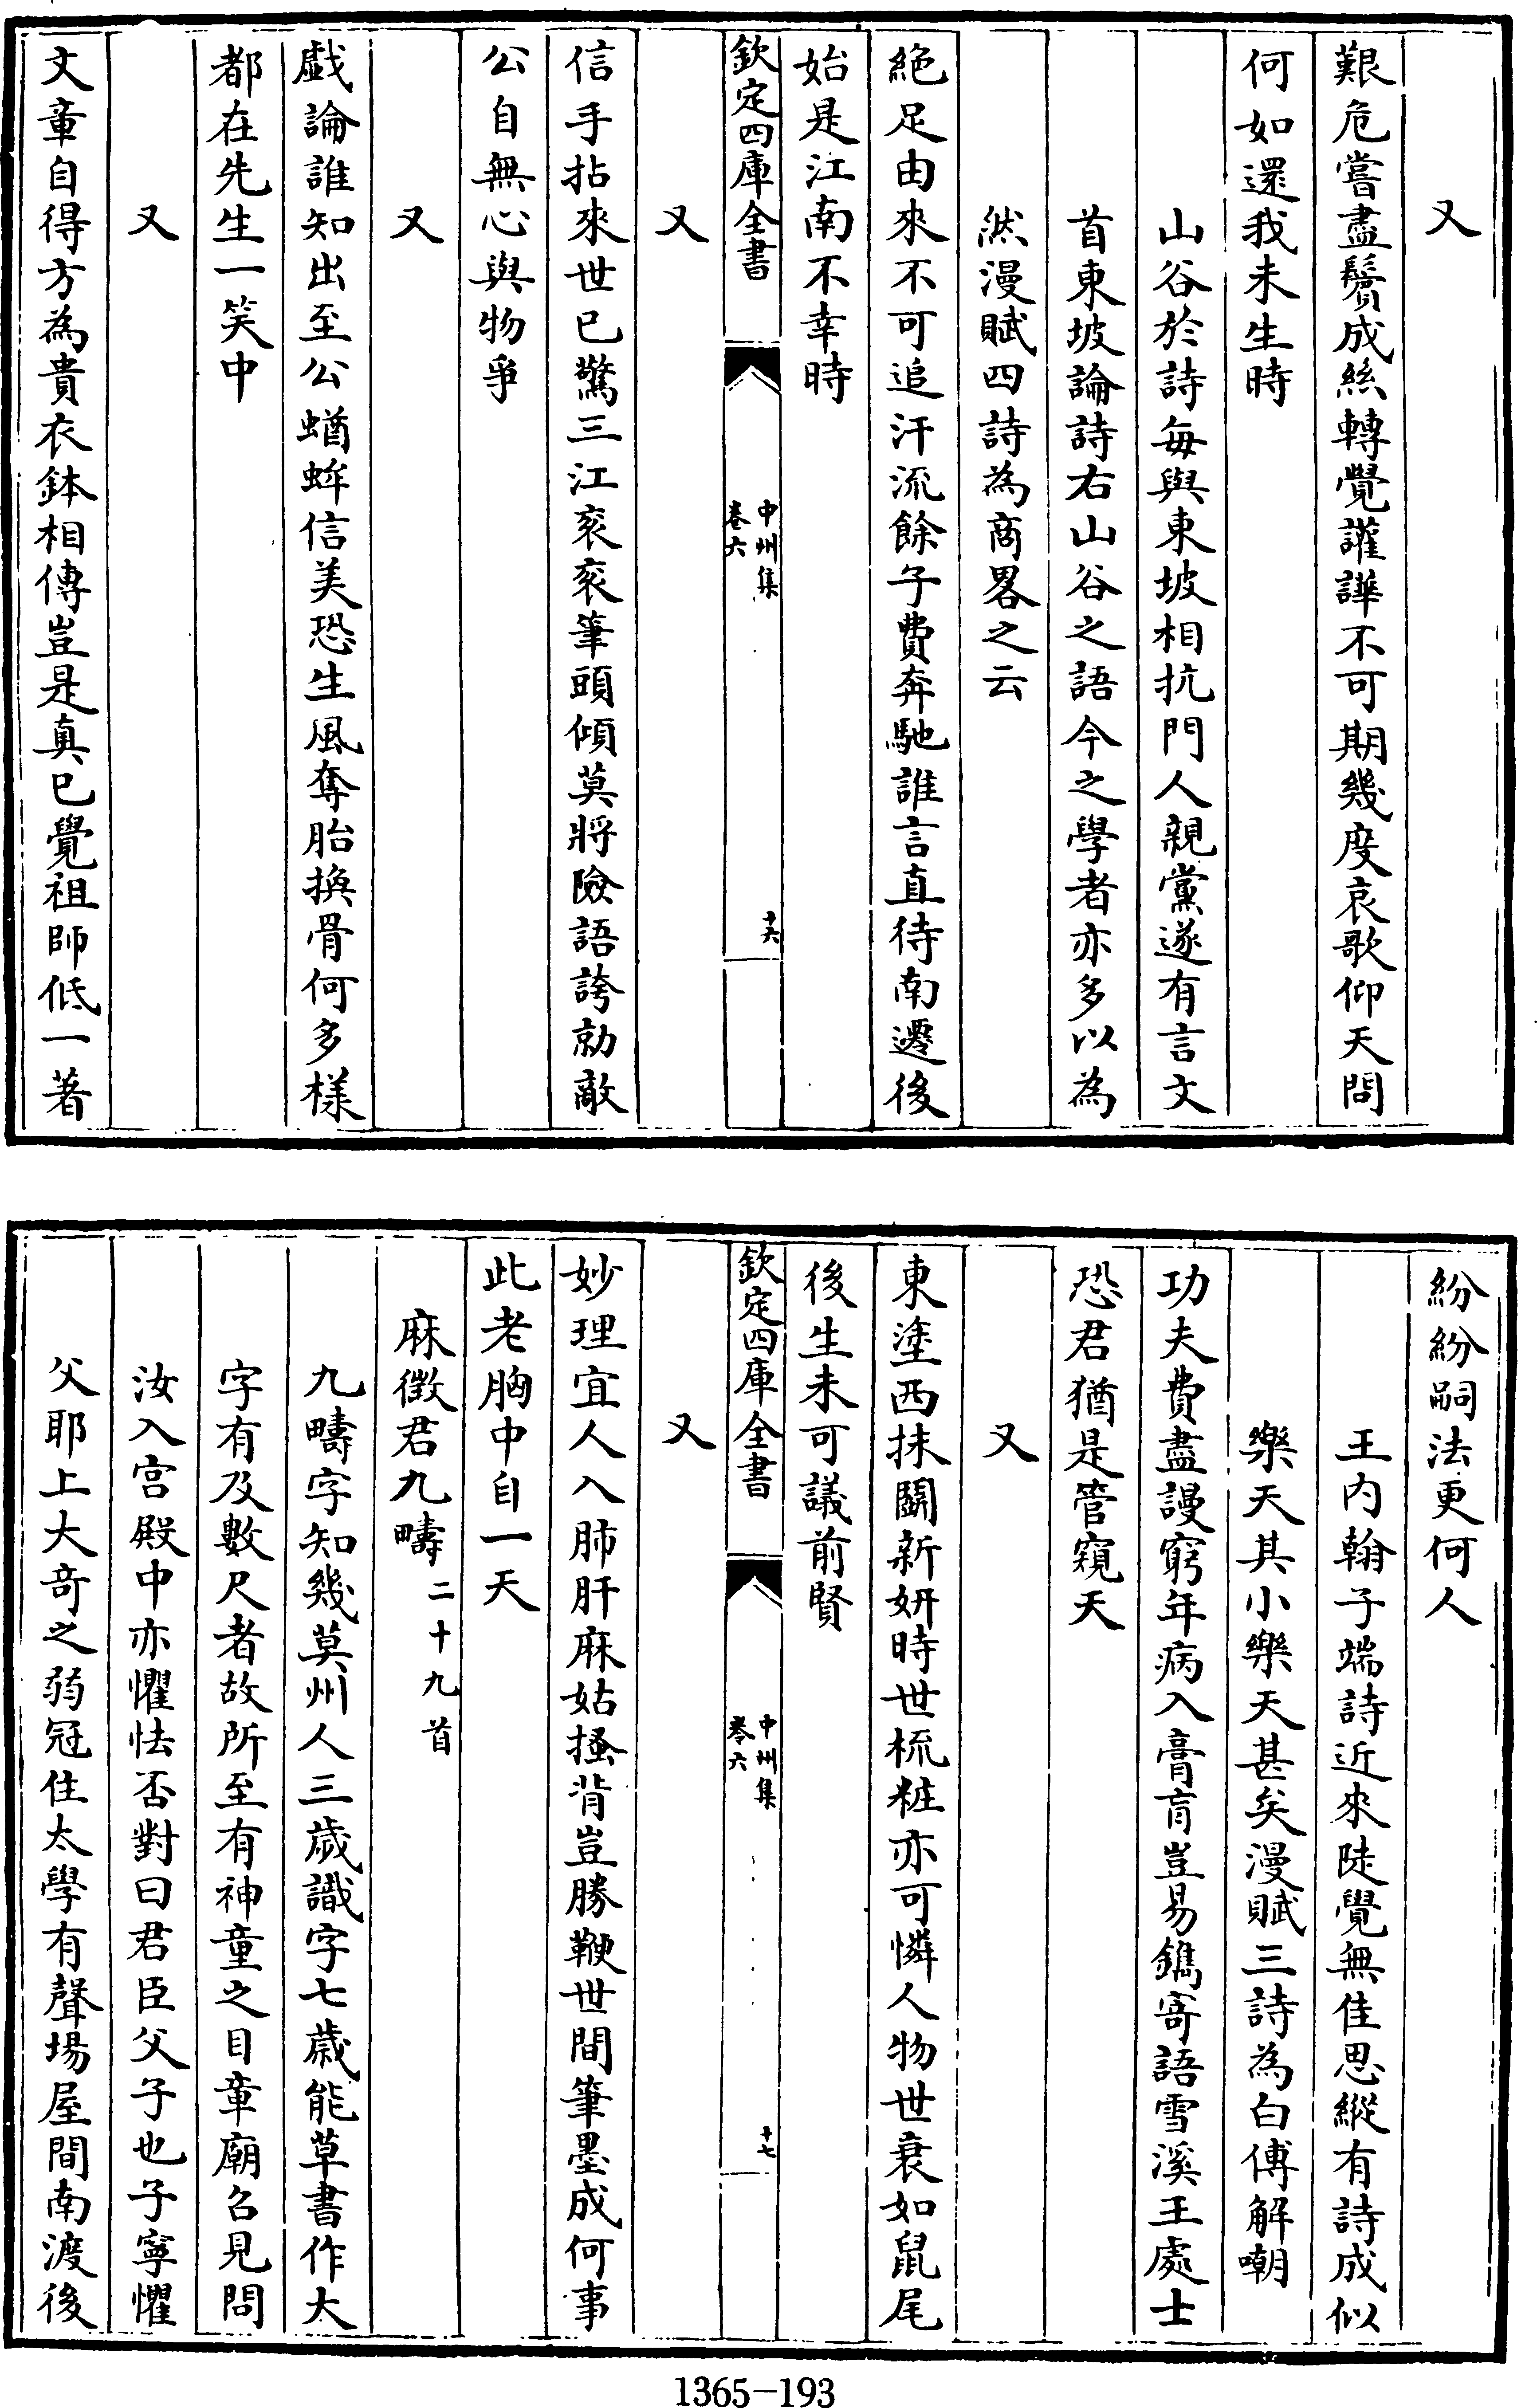 又
艱危嘗盡鬢成絲轉覺讙譁不可期幾度哀歌仰天問
何如還我未生時
山谷於詩每與東坡相抗門人親黨遂有言文
首東坡論詩右山谷之語今之學者亦多以為
然漫賦四詩為商畧之云
絶足由來不可追汗流餘子費奔馳誰言直待南遷後
始是江南不幸時
欽定四庫全書
中州集
卷六
十六
又
信手拈來世已驚三江衮衮筆頭傾莫將險語誇勍敵
公自無心與物爭
又
戲論誰知出至公蝤蛑信美恐生風奪胎換骨何多樣
都在先生一笑中
又
文章自得方為貴衣鉢相傳豈是真已覺祖師低一著
紛紛嗣法更何人
王内翰子端詩近來陡覺無佳思縱有詩成似
樂天其小樂天甚矣漫賦三詩為白傅解嘲
功夫費盡謾窮年病入膏肓豈易鐫寄語雪溪王處士
恐君猶是管窺天
又
東塗西抹鬬新妍時世梳粧亦可憐人物世衰如鼠尾
後生未可議前賢
欽定四庫全書
中州集
卷六
十七
又
妙理宜人入肺肝麻姑搔背豈勝鞭世間筆墨成何事
此老胸中自一天
麻徵君九疇二十九首
九疇字知幾莫州人三歲識字七歲能草書作大
字有及數尺者故所至有神童之目章廟召見問
汝入宫殿中亦懼怯否對曰君臣父子也子寧懼
父耶上大竒之弱冠住太學有聲塲屋間南渡後
1365-193